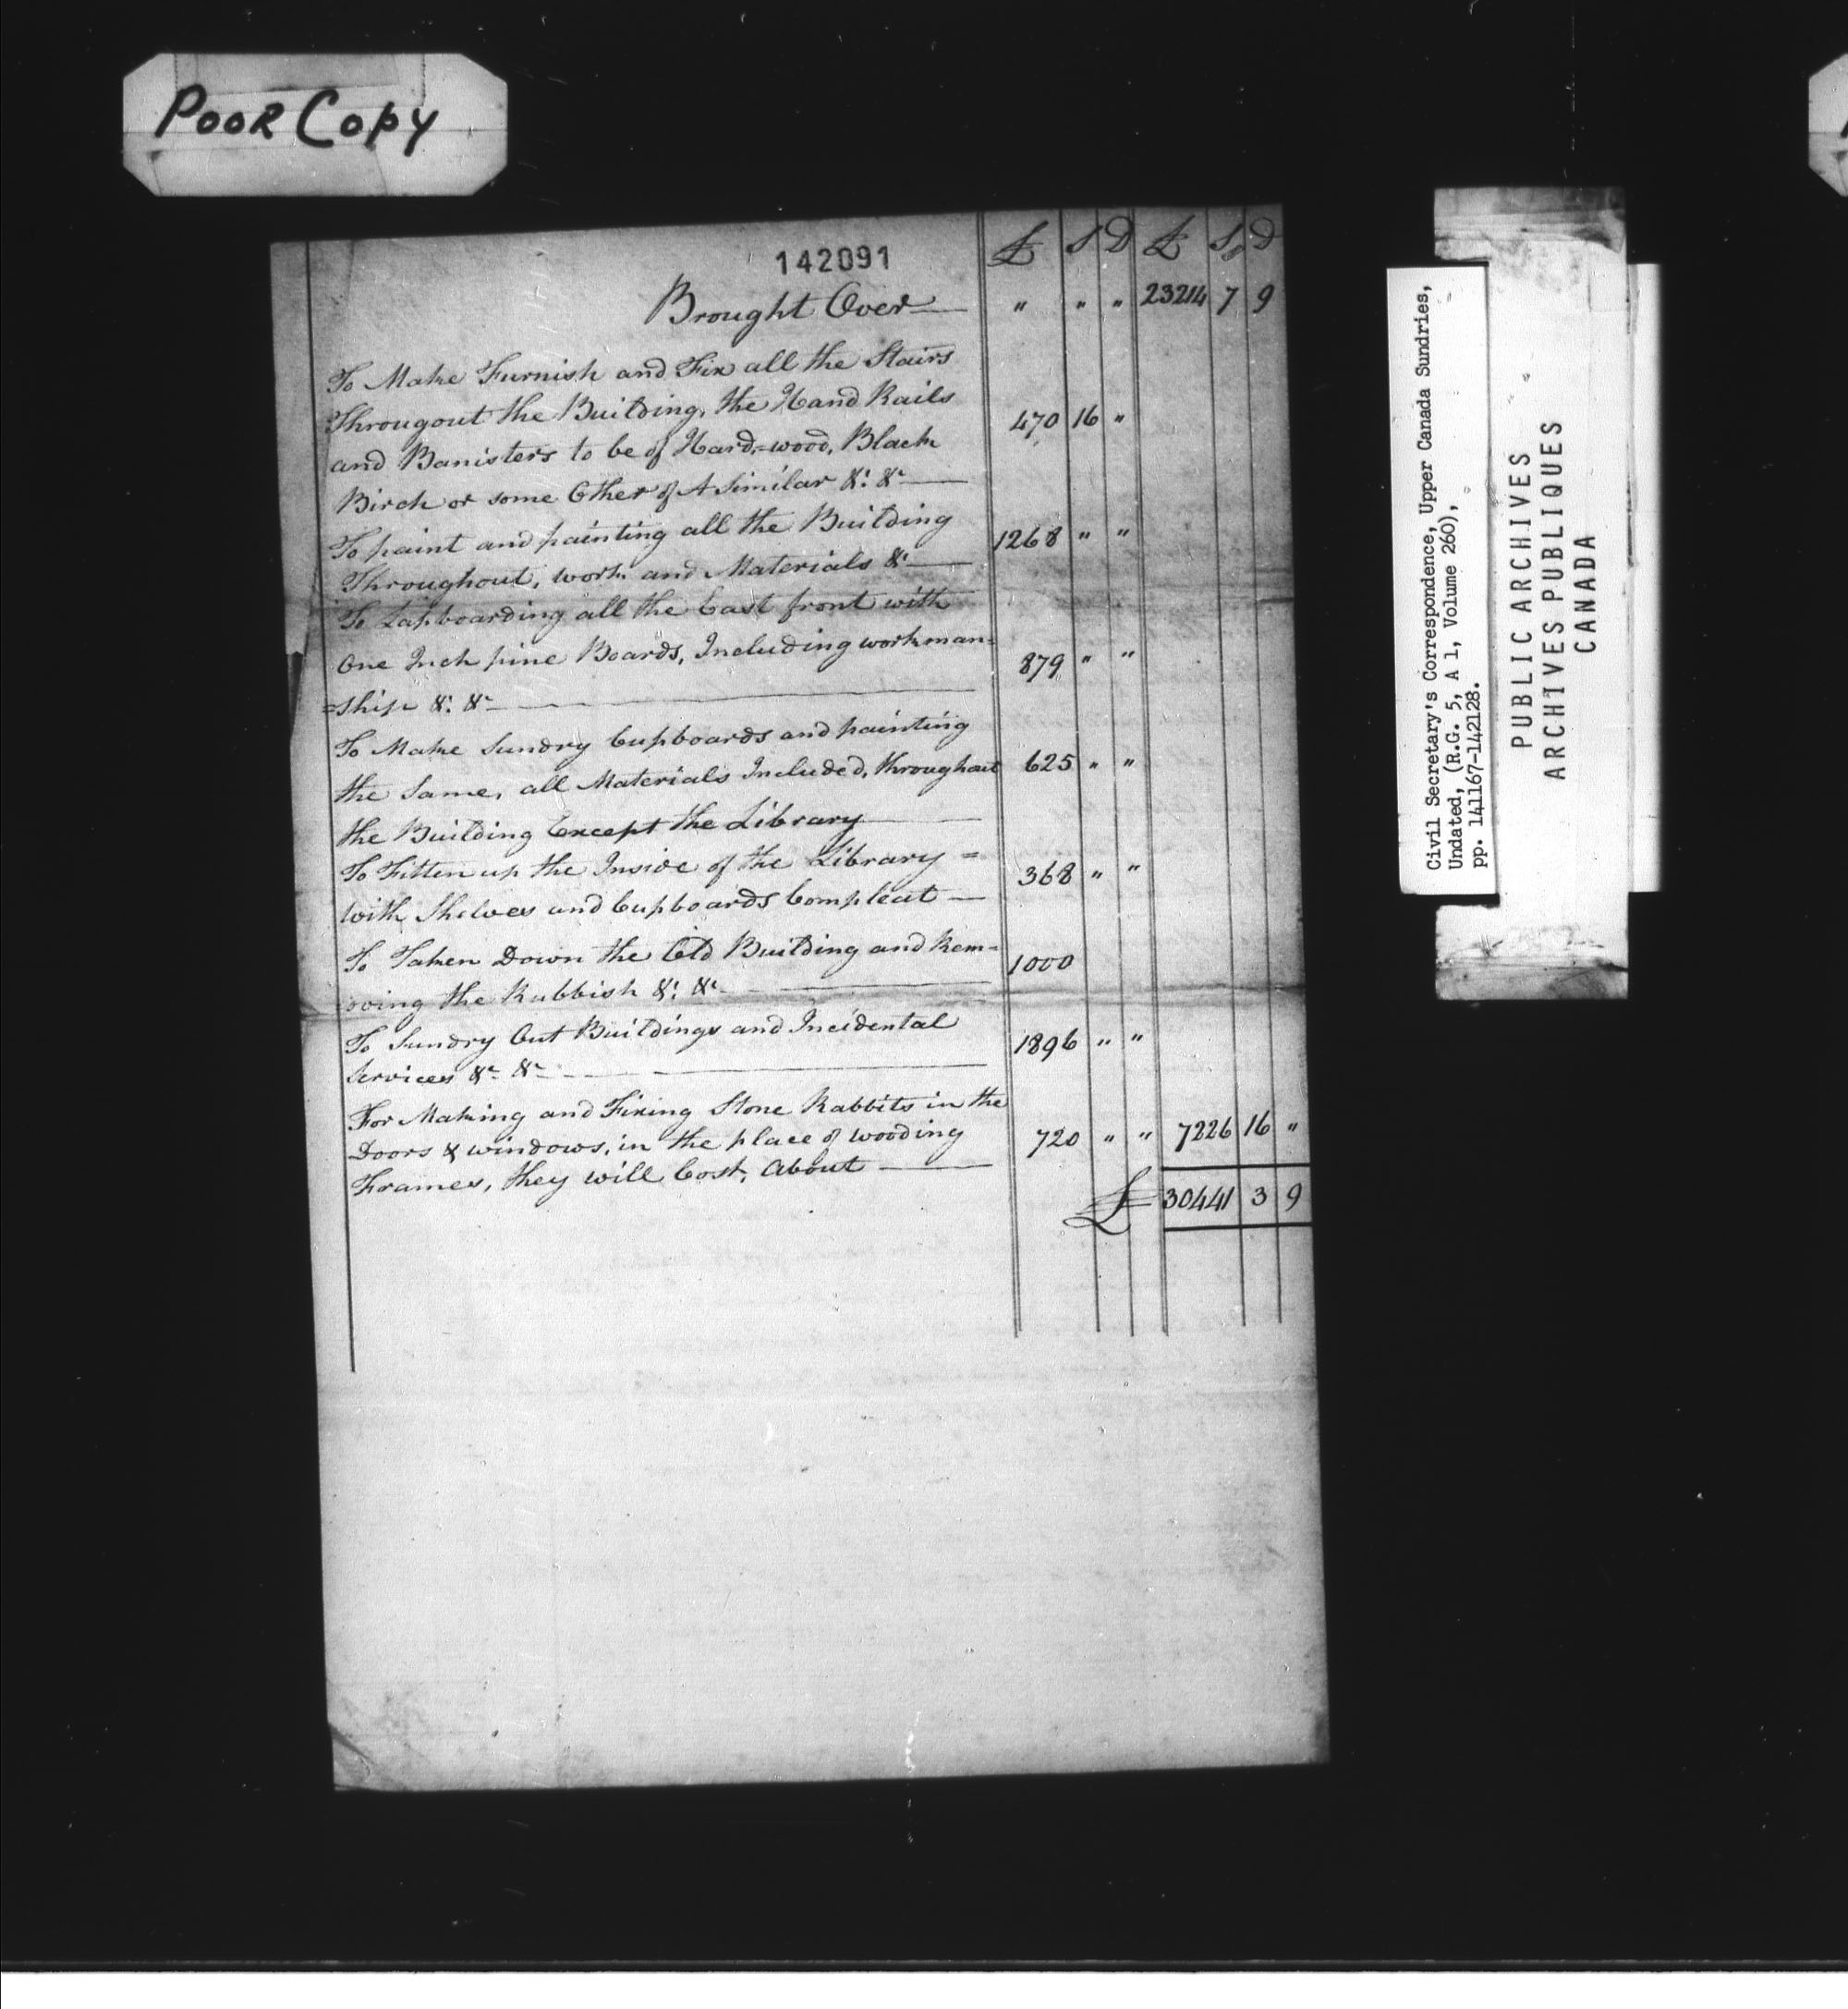 Poor Copy
142091
£ S D £ S D
Brought Over — " " " 23214 7 9
To Make Furnish and Fix all the Stairs
Througout the Building, the Hand Rails 470 16 "
and Banisters to be of Hard=wood, Black
Birch or some Other of A Similar &c &c —
To paint and painting all the Building 1268 " "
Throughout, work and Materials &c —
To Lapboarding all the East front with
One Inch pine Boards, Including workman= 879 " "
=ship &c &c —
To Make Sundry Cupboards and painting
the Same, all Materials Included, throughout 625 " "
the Building Except the Library —
To Fitten up the Inside of the Library = 368 " "
with Shelves and Cupboards Compleat —
To Taken Down the Old Building and Rem= 1000
oving the Rubbish &c &c —
To Sundry Out Buildings and Incidental 1896 " "
Services &c &c —
For Making and Fixing Stone Rabbits in the
Doors & windows, in the place of wooding 720 " " 7226 16 "
Frames, they will Cost, About —
£ 30441 3 9
Civil Secretary's Correspondence, Upper Canada Sundries,
Undated, (R.G. 5, A 1, Volume 260),
pp. 141167-142128.
PUBLIC ARCHIVES
ARCHIVES PUBLIQUES
CANADA